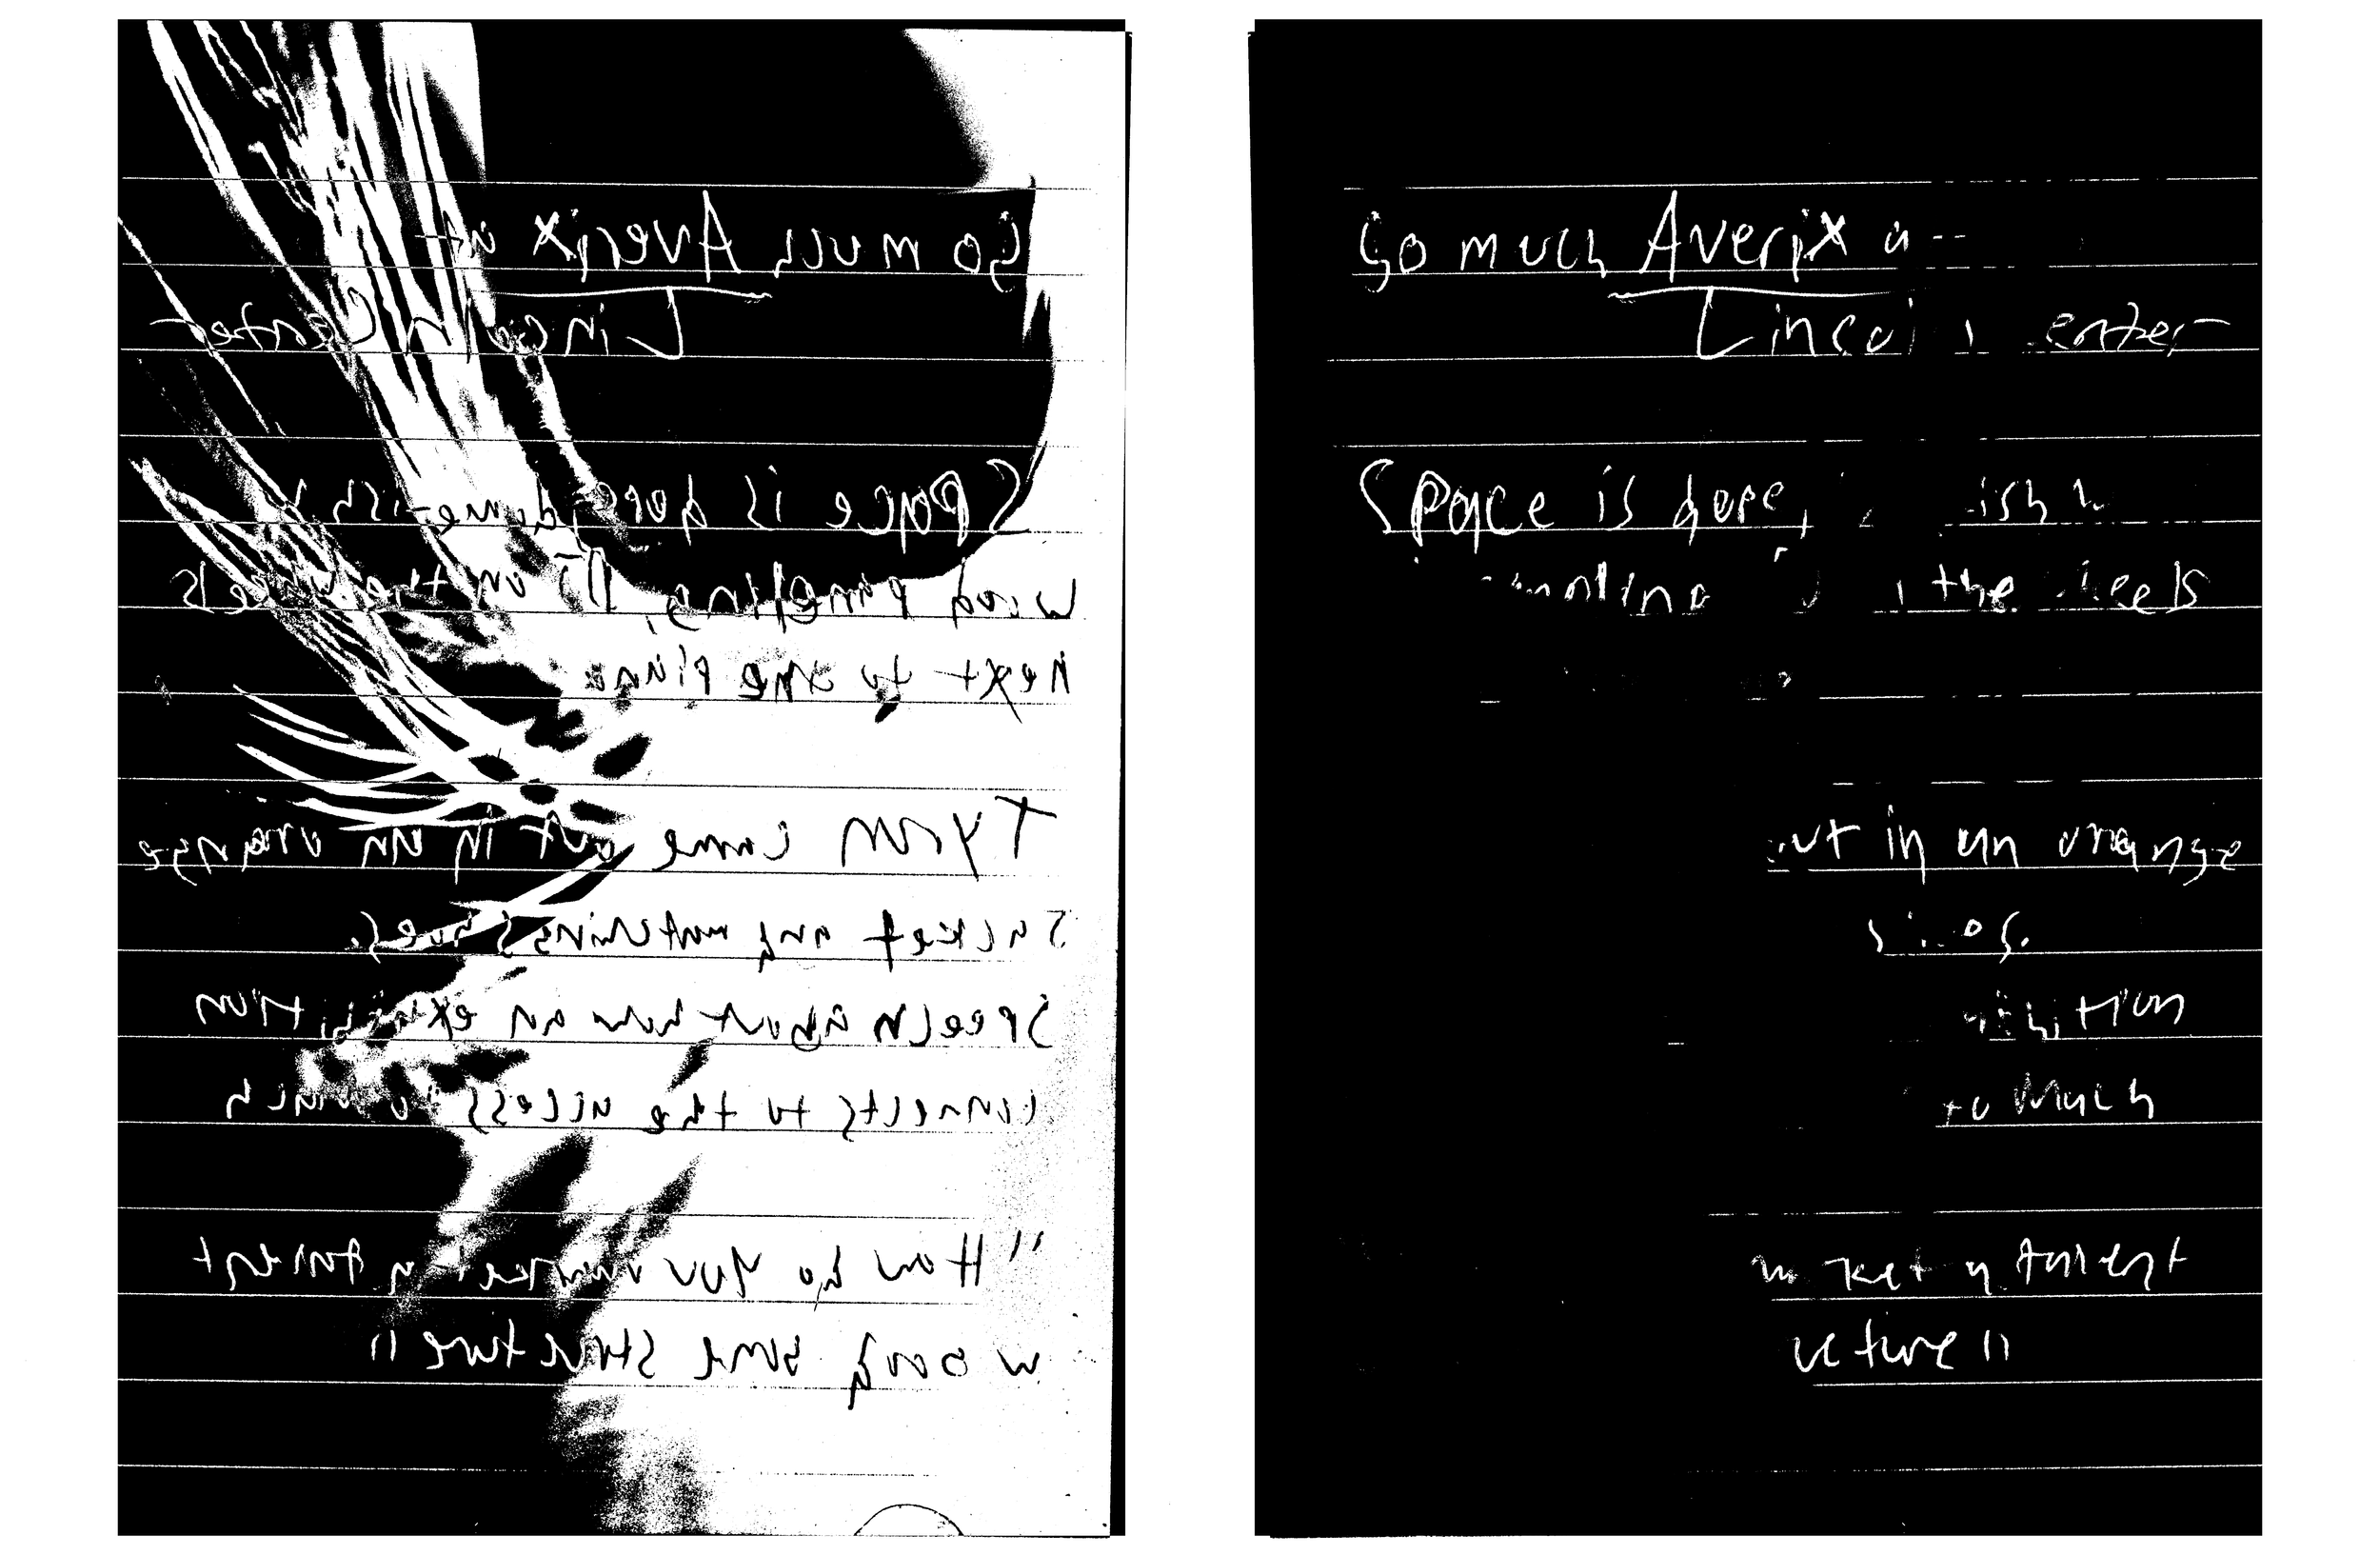 So much Averix at
Lincoln Center
Space is dope, dome-ish w
wood paneling, DJ on the wheels
next to the piano
Tyon come out in an orange
Jacket and matching shoes.
Speech about how an exhibition
connects to the access to which
"How do you market a talent
w song some structure"
So much Averix a
Lincol enter
Space is dope, ish w
the eels
out in an orange
to which
ket a talent
ucture"